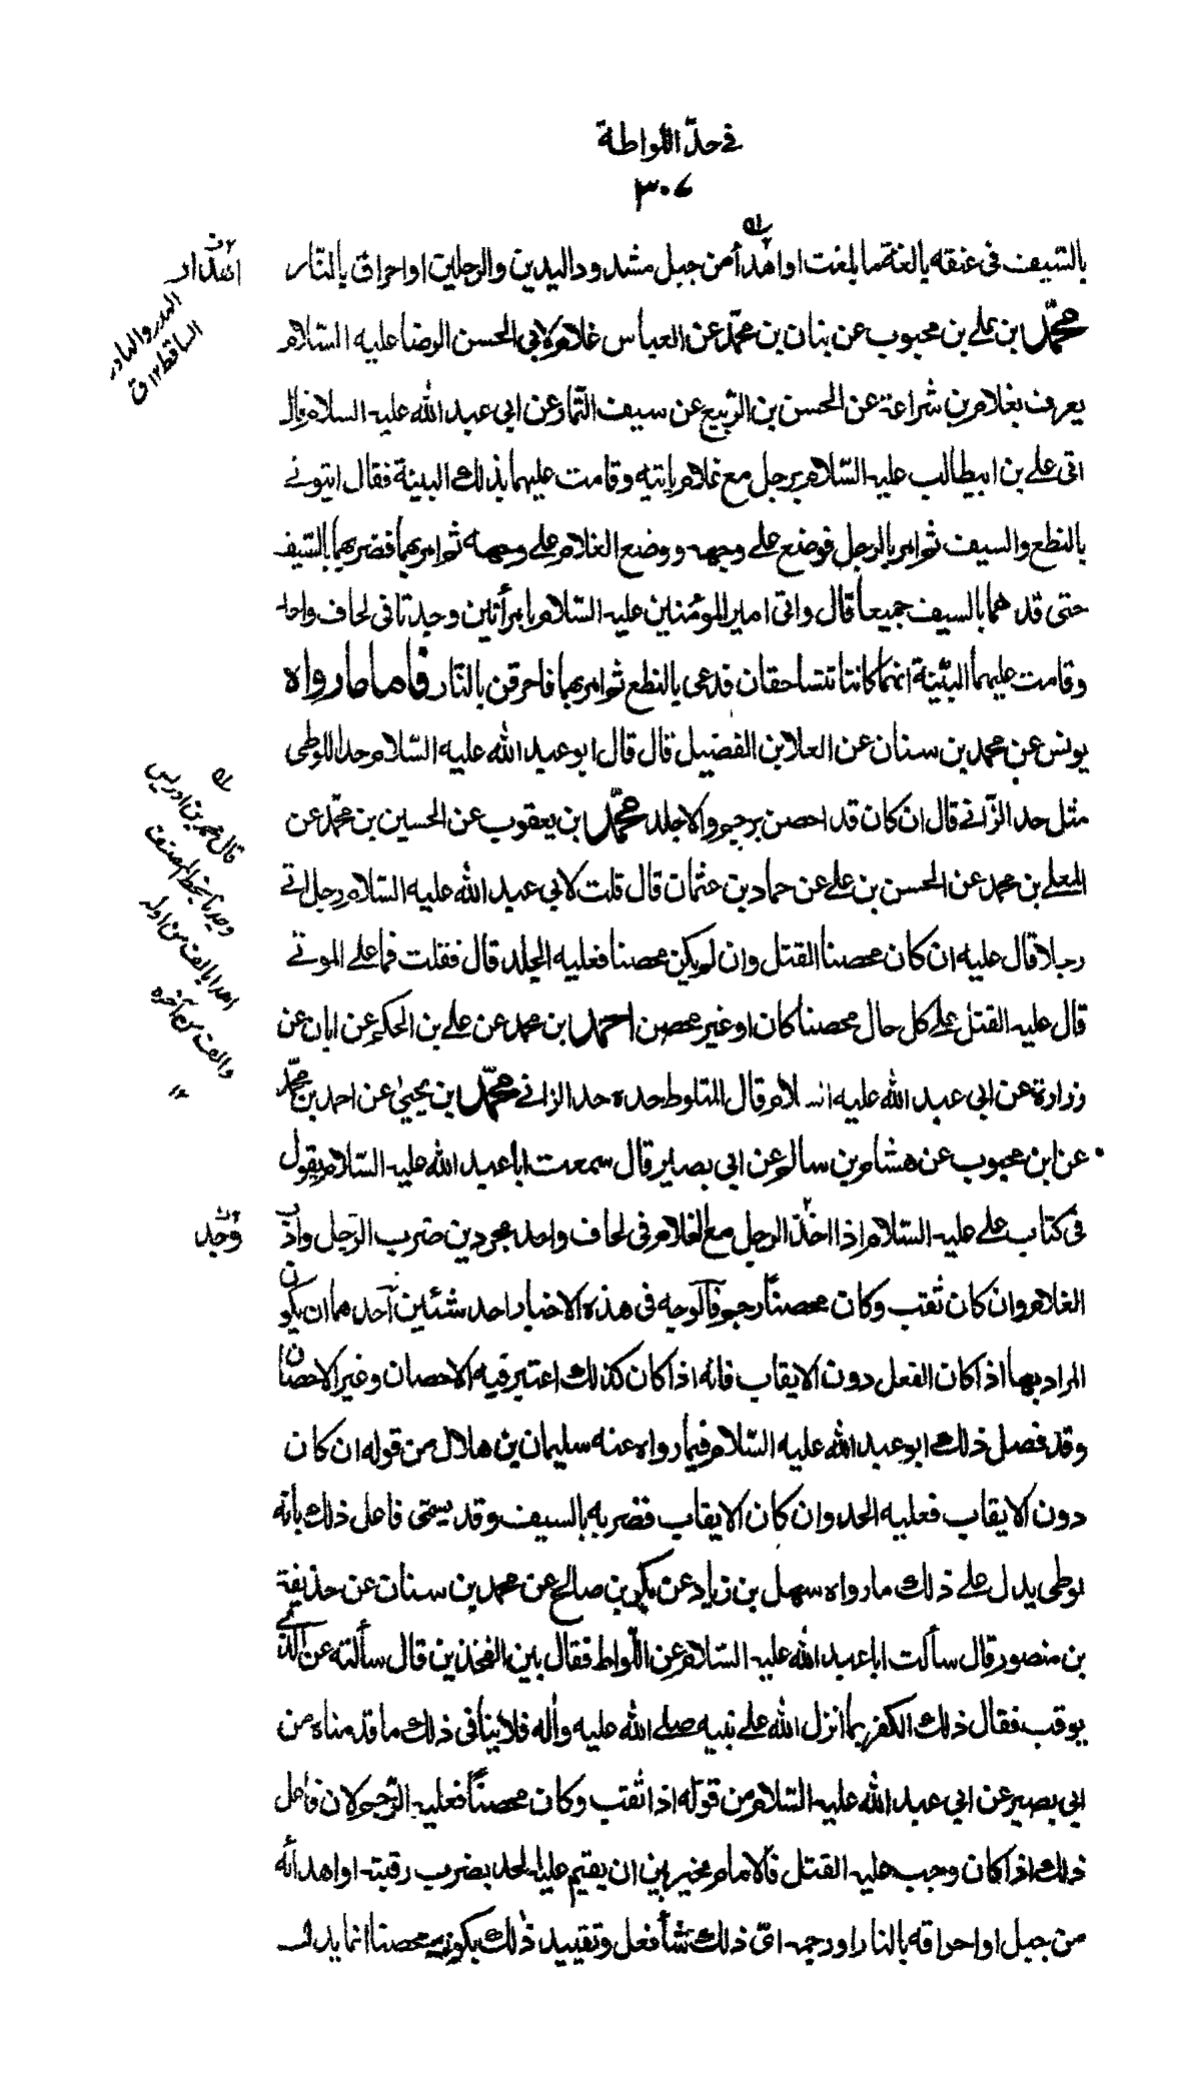 في حدّ اللواطة
٣٠٦
بالسّيف في عنقه بالغة ما بلغت او اهدأ من جبل مشدود اليدين والرجلين او احراق بالنّار
محمّد ابن علي بن محبوب عن بنان بن محمّد عن العباس غلام لابي الحسن الرضا عليه السّلام
يعرف بغلام بن شراعة عن الحسن بن الرّبيع عن سيف التّمار عن ابي عبد الله عليه السلام قال
اتى علي بن ابيطالب عليه السّلام برجل مع غلام ياتيه وقامت عليهما بذلك البينة فقال ايتوني
بالنطع والسيف ثم امر بالرجل فوضع على وجهه ووضع الغلام على وجهه ثم امر بهما فضربهما بالسّيف
حتى قدهما بالسيف جميعا قال واتى امير المؤمنين عليه السّلام بامرأتين وجدتا في لحاف واحد
وقامت عليهما البيّنة انهما كانتا تتساحقان فدعى بالنطع ثم امر بهما فاحرقن بالنّار فاما ما رواه
يونس عن محمد بن سنان عن العلا بن الفضيل قال قال ابو عبد الله عليه السّلام حد اللوطى
مثل حد الزّاني قال ان كان قد احصن يرجم والا جلد محمّد ابن يعقوب عن الحسين بن محمّد عن
المعلى بن محمد عن الحسن بن علي عن حماد بن عثمان قال قلت لابي عبد الله عليه السلام رجل اتى
رجلا قال عليه ان كان محصنا القتل وان لم يكن محصنا فعليه الجلد قال فقلت فما على الموتى
قال عليه القتل على كل حال محصنا كان او غير محصن احمد ابن محمد عن علي بن الحكم عن ابان عن
زرارة عن ابي عبد الله عليه السلام قال المتلوط حده حد الزاني محمّد ابن يحيى عن احمد بن محمّد
عن ابن محبوب عن هشام بن سالم عن ابي بصير قال سمعت ابا عبد الله عليه السّلام يقول
في كتاب علي عليه السّلام اذا اخذ الرجل مع الغلام في لحاف واحد مجردين ضرب الرّجل وادّب
الغلام وان كان ثقب وكان محصناً رجم فالوجه في هذه الاخبار احد شئين احدهما ان يكون
المراد بها اذا كان الفعل دون الايقاب فانه اذا كان كذلك اعتبر فيه الاحصان وغير الاحصان
وقد فصل ذلك ابو عبد الله عليه السّلام فيما رواه عنه سليمان بن هلال من قوله ان كان
دون الايقاب فعليه الحد وان كان الايقاب فضربه بالسيف وقد يسمّى فاعل ذلك بانه
لوطى يدل على ذلك ما رواه سهل بن زياد عن بكر بن صالح عن محمد بن سنان عن حذيفة
بن منصور قال سألت ابا عبد الله عليه السّلام عن اللّواط فقال بين الفخذين قال سألته عن الّذي
يوقب فقال ذلك الكفر بما انزل الله على نبيه صلى الله عليه وآله فلا ينافى ذلك ما قدمناه من
ابي بصير عن ابي عبد الله عليه السّلام من قوله اذا ثقب وكان محصناً فعليه الرّجم لان فاعل
ذلك اذا كان وجب عليه القتل فالامام مخير بين ان يقيم عليه الحد بضرب رقبته او اهدائه
من جبل او احراقه بالنار او رجمه اىّ ذلك شأ فعل وتقييد ذلك بكونه محصنا انما يدل
اهدار
الهدر والهادر
الساقط ١٢ ق
قال محمد بن ادريس
وجد بخط المصنف
اهدا بالف من اوله
والف من آخره
١٢
وجد